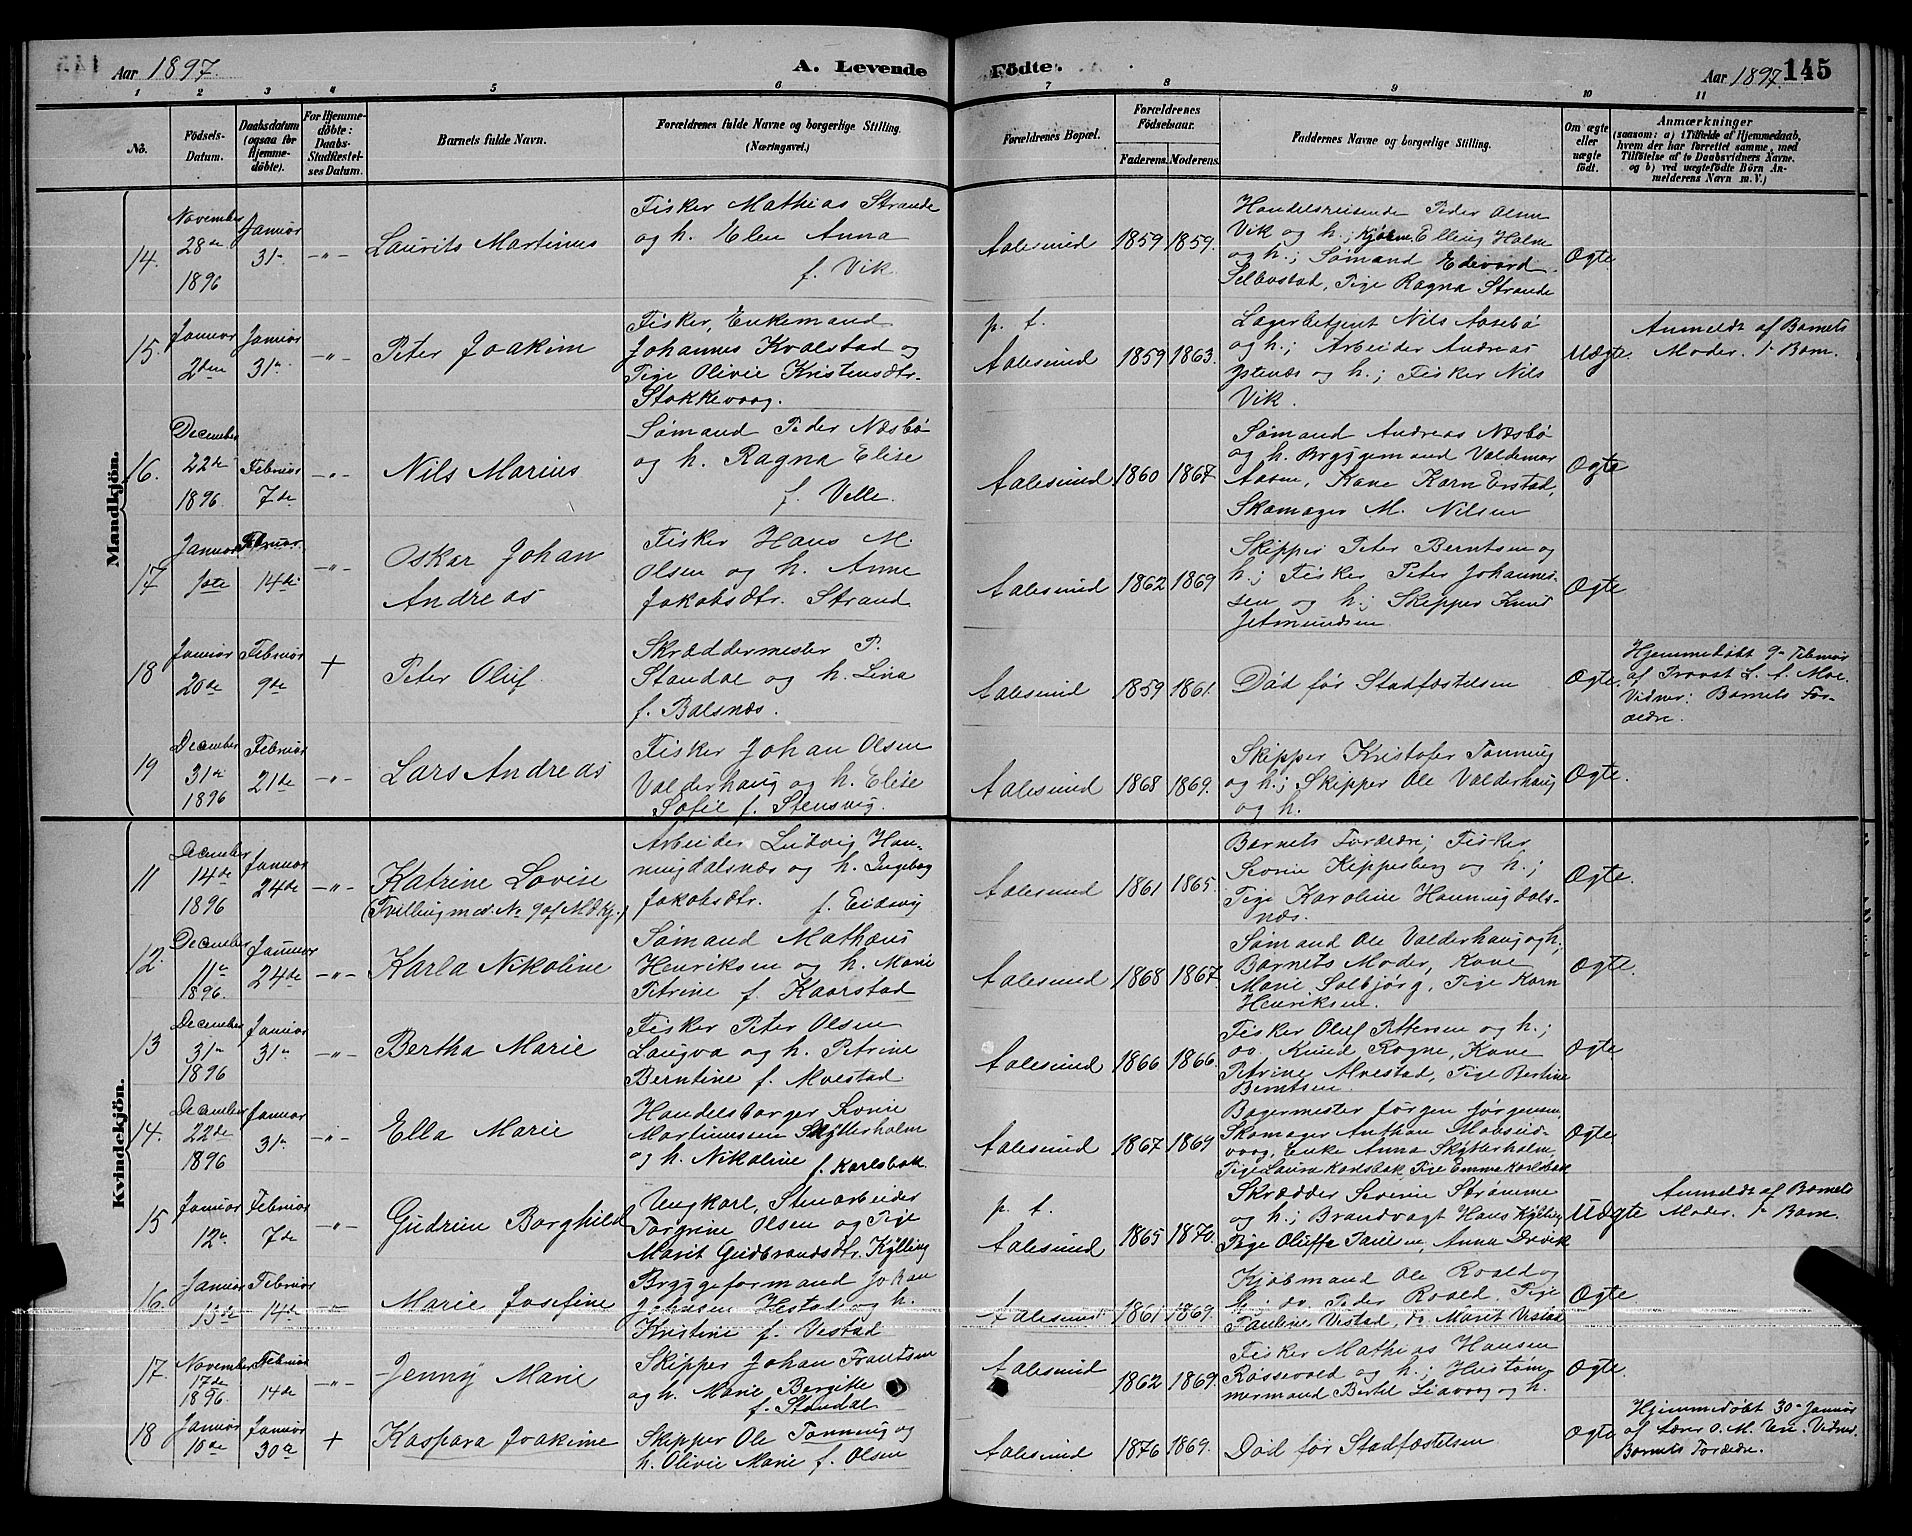 Aar 1897.
A. Levende
1 2 3 4 5 6
No.
Födsels-
Datum.
Daabsdatum
(ogsaa for
Hjemme-
döbte).
For Hjemme-
döbte:
Daabs-
Stadfæstel-
ses Datum.
Barnets fulde Navn.
Forældrenes fulde Navne og borgerlige Stilling.
(Næringsvei.)
Mandkjön.
14.
November
28de
1896
Januar
31-
-"-
Laurits Martinus
Fisker Mathias Strande
og h. Elen Anna
f. Vik.
15.
Januar
2den
Januar
31-
-"-
Peter Joakim
Fisker, Enkemand
Johannes Kvalstad og
Pige Olivie Kristensdtr.
Stokkevaag.
16.
December
22de
1896
Februar
7de
-"-
Nils Marius
Sømand Peder Næsbø
og h. Ragna Elise
f. Velle.
17
Januar
1ste
Februar
14de
-"-
Oskar Johan
Andreas
Fisker Hans M.
Olsen og h. Anne
Jakobsdtr. Strand
18
Januar
20de
Februar
9de
+
Peter Oluf
Skræddermester P.
Standal og h. Lina
f. Balsnæs.
19
December
31te
1896
Februar
21de
-"-
Lars Andreas
Fisker Johan Olsen
Valderhaug og h. Elise
Sofie f. Stensvig.
Kvindekjön.
11
December
14de
1896
Januar
24de
-"-
Katrine Lovise
(Tvilling med No 9 af M.Kj.)
Arbeider Ludvig Hon-
ningdalsnæs og h. Ingebog
Jakobsdtr. f. Eidsvig
12.
December
11te
1896.
Januar
24de
-"-
Karla Nikoline
Sømand Mathæus
Henriksen og h. Marie
Petrine f. Kaarstad
13
December
31te
1896
Januar
31-
-"-
Bertha Marie
Fisker Peter Olsen
Laugva og h. Petrine
Berntine f. Alvestad.
14.
December
22de
1896
Januar
31-
-"-
Ella Marie
Handelsborger Sevrin
Martinussen Skytterholm
og h. Nikoline f. Karlsbak.
15
Januar
12-
Februar
7de
-"-
Gudrun Borghild
Ungkarl, Stenarbeider
Torgrine Olsen og Pige
Marit Gudbrandsdtr. Kylling
16.
Januar
13de
Februar
14de
-"-
Marie Josefine
Bryggeformand Johan
Johnsen Hestad og h.
Kristine f. Vestad
17.
November
17de
1896.
Februar
14de
-"-
Jenny Marie
Skipper Johan Frantsen
og h. Marie Bergitte
f. Standal
18
Januar
10de
Januar
30te
+
Kaspara Joakime
Skipper Ole Tønning og
h. Olivie Marie f. Olsen
Födte.
Aar 1897.
145
7 8 9 10 11
Forældrenes Bopæl.
Forældrenes
Födselsaar.
Faderens. Moderens.
Faddernes Navne og borgerlige Stilling.
Om ægte
eller
uægte
födt.
Anmærkninger
(saasom: a) i Tilfælde af Hjemmedaab,
hvem der har forrettet samme, med
Tilföielse af to Daabsvidners Navne.
og b) ved uægtefödte Börn An-
melderens Navn m. V.)
Aalesund
1859 1859.
Handelsreisende Peder Olsen
Vik og h.; Kjøbm. Elling Holm
og h.; Sømand Edevard
Selbostad, Pige Ragna Strande
Ægte
p. t.
Aalesund
1859 1863.
Lagerbetjent Nils Aasebø
og h.; Arbeider Andreas
Ystenæs og h.; Fisker Nils
Vik.
Uægte.
Anmeldt af Barnets
Moder. 1- Barn.
Aalesund
1860 1867.
Sømand Andreas Næsbø
og h. Bryggemand Valdemar
Aasen, Kone Karn Erstad,
Skomager M. Nilsen
Ægte
Aalesund
1862 1869
Skipper Peter Berntsen og
h.; Fisker Peter Johannes-
sen og h.; Skipper Knud
Jetmundsen.
Ægte
Aalesund
1859 1861.
Død før Stadfæstelsen
Ægte.
Hjemmedøbt 9- Februar
af Provst L. A. Moe.
Vidner: Barnets For-
ældre.
Aalesund
1868 1869.
Skipper Kristofer Tønning
og h.; Skipper Ole Valderhaug
og h.
Ægte.
Aalesund
1861 1865.
Barnets Forældre; Fisker
Sevrin Kippersberg og h.;
Pige Karoline Honningdals-
næs.
Ægte.
Aalesund
1868 1867.
Sømand Ole Valderhaug og h;
Barnets Moder, Kone
Marie Solbjørg, Pige Karn
Henriksen.
Ægte.
Aalesund
1866 1866.
Fisker Oluf Pettersen og h.;
do. Knud Rogne, Kone
Petrine Alvestad, Pige Bertine
Berntsen.
Ægte
Aalesund
1867 1869
Bagermester Jørgen Jørgensen,
Skomager Anthon Mobseid-
vaag, Enke Anna Skytterholm,
Pige Laura Karlsbak, Pige Emma Karlsbak
Ægte
p. t.
Aalesund
1865 1870.
Skrædder Severin Strømme
og h.; Brandvagt Hans Kylling
Pige Oluffa Paulsen, Anna Drevik
Uægte
Anmeldt af Barnets
Moder. 1- Barn.
Aalesund
1861 1869.
Kjøbmand Ole Roald og
h.; do Peder Roald, Pige
Pauline Vestad, do Marit Vestad
Ægte
Aalesund
1862 1869.
Fisker Mathias Hansen
Røssevold og h.; Hustøm-
mermand Bertil Liavaag og h.
Ægte
Aalesund
1876 1869.
Død før Stadfæstelsen
Ægte
Hjemmedøbt 30- Januar
af Lærer O. M. Vidner
Barnets Forældre.